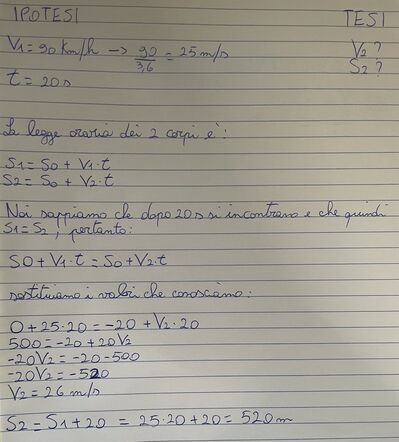 IPOTESI TESI
V1 = 90 Km/h -> 90/3,6 = 25 m/s V2 ?
t = 20 s S2 ?
La legge oraria dei 2 corpi è:
S1 = S0 + V1·t
S2 = S0 + V2·t
Noi sappiamo che dopo 20 s si incontrano e che quindi
S1 = S2, pertanto:
S0 + V1·t = S0 + V2·t
sostituiamo i valori che conosciamo:
0 + 25·20 = -20 + V2·20
500 = -20 + 20V2
-20V2 = -20 -500
-20V2 = -520
V2 = 26 m/s
S2 = S1 + 20 = 25·20 + 20 = 520 m